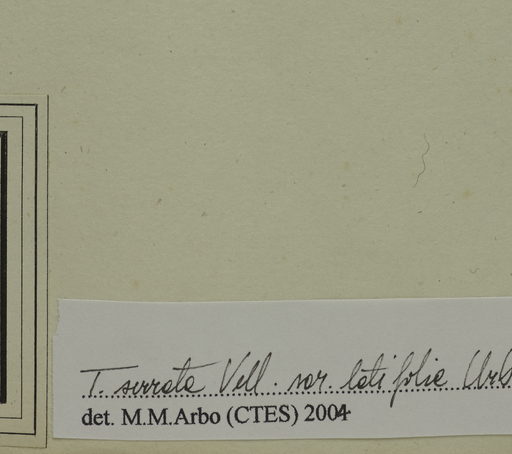 T. serrata Vell. var. latifolia Urb
det. M.M.Arbo (CTES) 2004